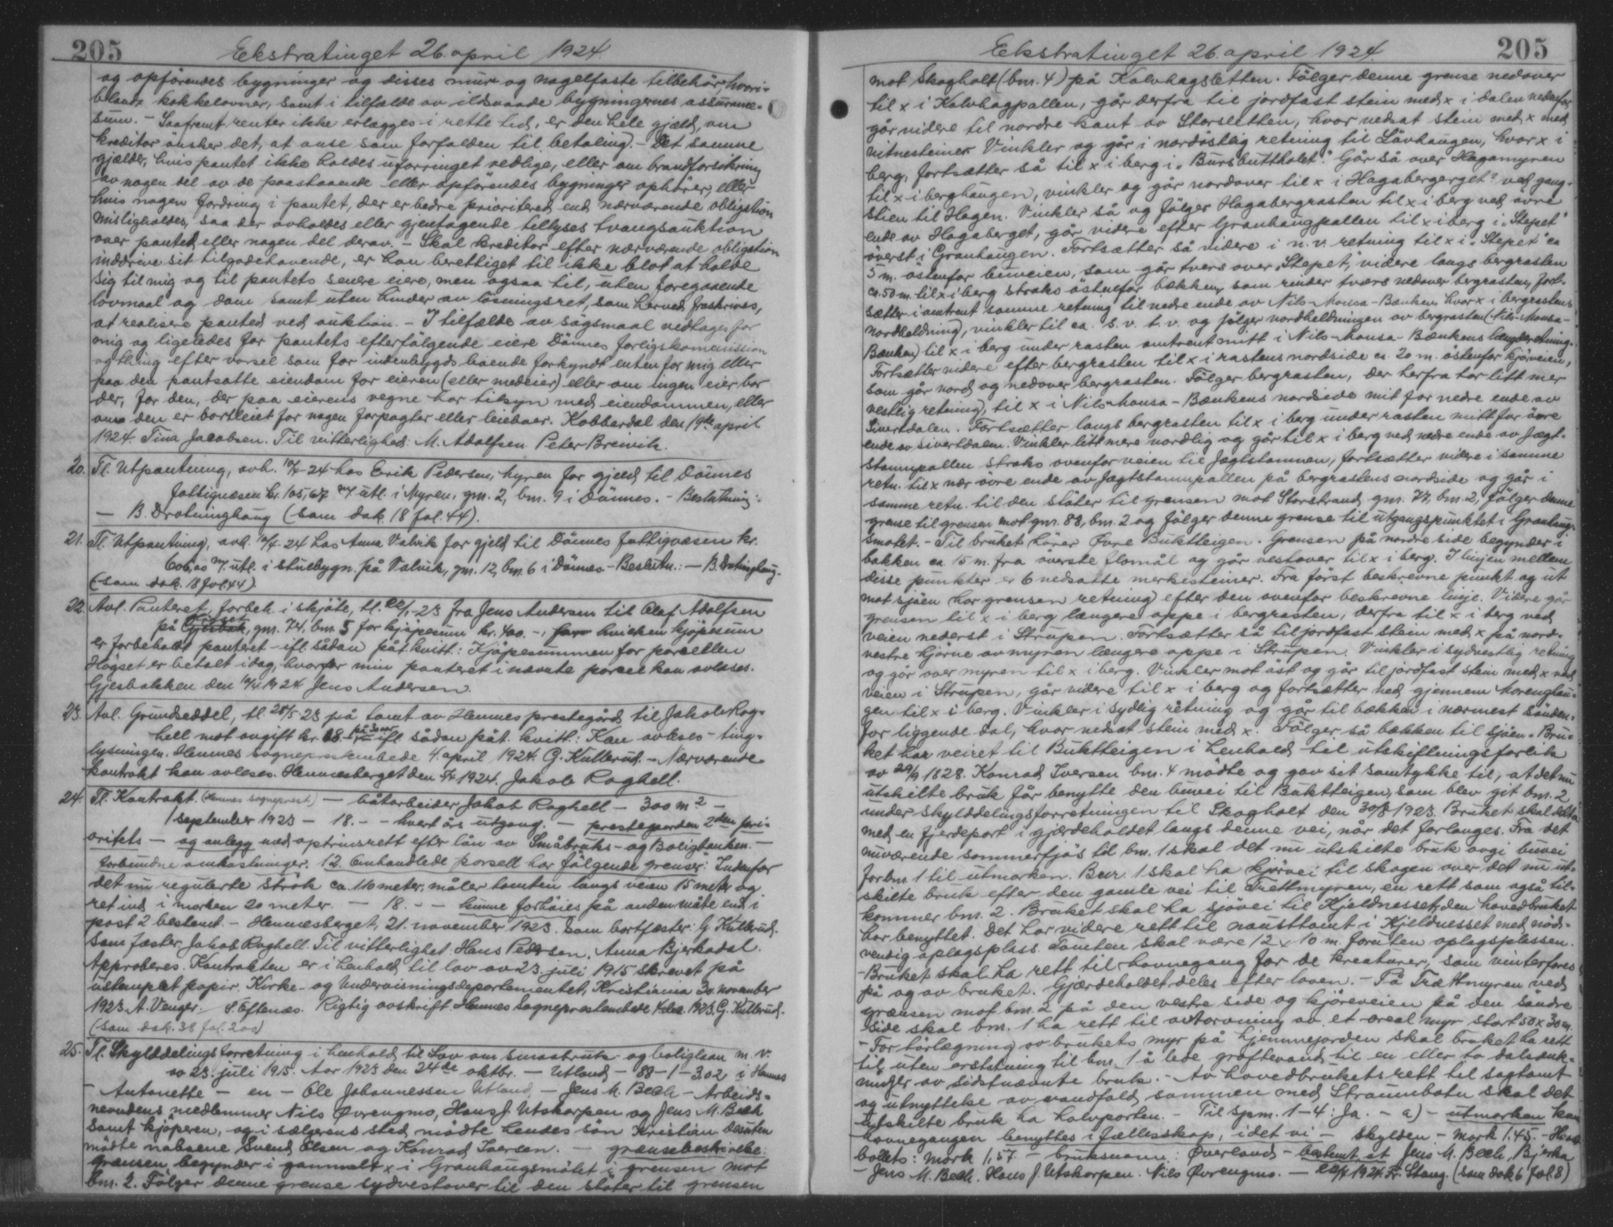 205
Ekstratinget 26 april 1924.
og opförendes bygninger og disses mur og nagelfaste tilbehör, hvori-
blandt kakkelovner, samt i tilfælde av ildsvaade bygningernes assurance-
sum. - Saafremt renter ikke erlægges i rette tid, er den hele gjæld, om
kreditor önsker det, at anse som forfalden til betaling. - Det samme
gjælder, hvis pantet ikke holdes uforringet vedlige, eller om brandforsikring
av nogen del av de paastaaende eller opförendes bygninger ophörer, eller
hvis nogen fordring i pantet, der er bedre prioriteret end nærværende obligation
misligholdes, saa der avholdes eller gjentagende tillyses tvangsauktion
over pantet eller nogen del derav. - Skal kreditor efter nærværende obligation
inddrive sit tilgodehavende, er han berettiget til ikke blot at holde
sig til mig og til pantets senere eiere, men ogsaa til, uten foregaaende
lovmaal og dom samt uten hinder av lösningsret, som herved fraskrives,
at realisere pantet ved auktion. - I tilfælde av sögsmaal vedtages for
mig og ligeledes for pantets efterfølgende eiere Dønnes forligskommission
og thing efter varsel som for indenbygds boende forkyndt enten for mig eller
paa den pantsatte eiendom for eieren (eller medeier) eller om ingen eier bor
der, for den, der paa eierens vegne har tilsyn med eiendommen, eller
om den er bortleiet for nogen forpagter eller leieboer. Kobberdal den 19de april
1924 Tina Jacobsen. Til vitterlighed: M. Adolfsen Peter Brevik.
20. Tl. Utpantning, avh. 10/4-24 hos Erik Pedersen, Myren for gjeld til Dönnes
fattigvæsen kr. 105,67 m/ utl. i Myren, gm. 2, bm. 9 i Dönnes. - Beslutning:
- B. Drotninghaug (Som dok. 18 fol. 44).
21. Tl. Utpantning, avh. 11/4-24 hos Anna Valvik for gjeld til Dönnes fattigvæsen kr.
606,00 m/ utl. i stuebygn. på Valvik, gm. 12, bm. 6 i Dönnes - Beslutn.: - B. Drotninghaug.
(Som dok. 18 fol. 44)
22. Avl. Panteret, forbeh. i skjöte, tl. 22/1-23 fra Jens Andersen til Olaf Adolfsen
på gm. 74, bm. 5 for kjøpesum kr. 400.-, hvilken kjöpesum
er forbeholdt panteret - ifl. sådan påt. kvitt: Kjöpesummen for parsellen
Högset er betalt idag, hvorfor min panteret i nævnte parsel kan avlæses.
Gjesbakken den 1924 Jens Andersen
23. Avl. Grundseddel, tl. 28/5 23 på tomt av Hemnes prestegård til Jakob Rog-
hell mot avgift kr. 18- ifl. sådan påt. kvitt: Kan avlæses - ting-
lysningen. Hemnes sogneprestembede 4. april 1924 G. Kullerud. - Nærværende
kontrakt kan avleses. Hemnesberget den 1924. Jakob Roghell.
24. Tl. Kontrakt. (Hemnes sogneprest) - båtarbeider Jakob Roghell - 300 m² -
1 september 1923 - 18. - - hvert års utgang. - prestegården 2den pri-
oritets - og anlegg med optrinsrett efter lån av Småbruks- og Boligbanken. -
forbundne omkostninger. 12. Omhandlede parsell har fölgende grenser: Indenfor
det nu regulerte strök ca. 110 meter, måler tomten langs veien 15 meter og
ret ind i marken 20 meter. - 18. - - kunne forhöies på anden måte end i
post 2 bestemt - Hemnesberget, 21. november 1923. Som bortfester: G. Kullerud.
Som fæster, Jakob Roghell Til vitterlighet: Hans Pedersen, Anna Bjerkadal.
Approberes. Kontrakten er i henhold til lov av 23 juli 1915 skrevet på
ustemplet papir. Kirke- og Undervisningsdepartementet, Kristiania 30 november
1923. A. Venger. S. Eftenæs. Rigtig avskrift Hemnes Sogneprestembede 1923. G. Kullerud.
(Som dok. 38 fol. 200)
25. Tl. Skylddelingsforretning i henhold til Lov om småbruk og boliglaan m. v.
av 23. juli 1915. Aar 1923 den 24de oktbr. - Utland - 88 - 1 - 3.02 i Hemnes
- Antonette - en - Ole Johannessen Utland - Jens M. Bech - Arbeids-
nevndens medlemmer Nils Övrengmo, Hans J. Utskarpen og Jens M. Bech
samt kjöperen, og i sælgerens sted mödte hendes sön Kristian desuten
mödte naboene Svend Olsen og Konrad Iversen. - grænsebeskrivelse:
Grænsen begynder i gammelt x i Granhaugsmölet i grensen mot
bm. 2. Fölger denne grense sydvestover til den stöter til grensen
205
Ekstratinget 26 april 1924
mot Skogholt (bm. 4) på Kalvhagsletten. Fölger denne grense nedover
til x i Kalvhagpallen, går derfra til jordfast stein med x i dalen nedenfor,
går videre til nordre kant av Storsletten, hvor nedsat stein med x med
vitnesteiner Vinkler og går i nordöstlig retning til Lövhaugen, hvor x i
berg, fortsætter så til x i berg i "Bursbuttholet". Går så over Hagamyren
til x i berghaugen, vinkler og går nordover til x i Hagabergerget? ved gang-
stien til Hagen. Vinkler så og fölger Hagabergrasten til x i berg ved övre
ende av Hagaberget, går videre efter Granhaugpallen til x i berg i "Stepet"
överst i Granhaugen. Fortsætter så videre i n. v. retning til x i "Stepet" ca
5 m. östenfor bumeien, som går tvers over "Stepet", videre langs bergrasten
ca. 50 m. til x i berg straks östenfor bækken, som rinder tværs nedover bergrasten, fort-
sætter i omtrent samme retning til nedre ende av Nils-Monsa-Bænken hvor x i bergrastens
nordheldning, vinkler til ca. s. v. t. v. og fölger nordheldningen av bergrasten (Nils-Monsa-
Bænken) til x i berg under rasten omtrent mitt i Nils-Monsa-Bænkens længderetning.
Fortsætter videre efter bergrasten til x i rastens nordside ca. 20 m. östenfor kjöreveien,
som går nord og nedover bergrasten. Fölger bergrasten, der herfra har litt mer
vestlig retning, til x i Nils-Monsa-Bænkens nordside mit for nedre ende av
Sivertdalen. Fortsætter langs bergrasten til x i berg under rasten mitt for övre
ende av Sivertdalen. Vinkler litt mere nordlig og går til x i berg ved nedre ende av Jægt-
stamnpallen straks ovenfor veien til Jægtstamnen, fortsætter videre i samme
retn. til x nær övre ende av Jægtstamnpallen på bergrastens nordside og går i
samme retn. til den stöter til grensen mot Storstrand, gm. 77, bm. 2, fölger denne
grense til grensen mot gm. 88, bm. 2 og fölger denne grense til utgangspunktet i Granhaug-
smölet. - Til bruket hörer Fore Buktteigen. Grensen på nordre side begynder i
bakken ca 15 m. fra överste flomål og går vestover til x i berg. I linjen mellem
disse punkter er 6 nedsatte merkesteiner. Fra först beskrevne punkt og ut
mot sjöen har grensen retning efter den ovenfor beskrevne linje. Videre går
grensen til x i berg længere oppe i bergrasten, derfra til x i berg ved
veien nederst i Strupen. Fortsætter så til jordfast stein med x på nord-
vestre hjörne av myren længere oppe i Strupen. Vinkler i sydvestlig retning
og går over myren til x i berg. Vinkler mot öst og går til jordfast stein med x ved
veien i Strupen, går videre til x i berg og fortsætter ned gjennem
gen til x i berg. Vinkler i sydlig retning og går til bækken i nærmest sönden-
for liggende dal, hvor nedsat stein med x. Fölger så bækken til sjöen. Bru-
ket har veiret til Buktteigen i henhold til utskiftningsforlik
av 29/9 1828. Konrad Iversen bm. 4 mödte og gav sit samtykke til, at det nu
utskilte bruk får benytte den bumvei til Buktteigen, som blev git bm. 2
under skylddelingsforretningen til Skogholt den 30/8 1923. Bruket skal delta
med en fjerdepart i gjærdeholdet langs denne vei, når det forlanges. Fra det
nuværende sommerfjös til bm. 1 skal det nu utskilte bruk avgi bumei
for bm. 1 til utmarken. Bnr. 1 skal ha kjörvei til skogen over det nu ut-
skilte bruk efter den gamle vei til Trettmyren, en rett som også til-
kommer bm. 2. Bruket skal ha sjövei til Kjeldnesset, den hovedbruket
har benyttet. Det har videre rett til nausttomt i Kjeldnesset med nöd-
vendig oplagsplass. Tomten skal være 12 x 10 m. foruten oplagsplassen.
- Bruket skal ha rett til havnegang for de kreaturer, som vinterfores
på og av bruket. Gjærdeholdet deles efter loven. - På Trættmyren ved
grænsen mot bm. 2 på den vestre side og kjöreveien på den söndre
side skal bm. 1 ha rett til avtorvning av et areal myr stort 50 x 30 m.
- For törlægning av brukets myr på hjemmejorden skal bruket ha rett
til uten erstatning til bm. 1 å lede gröftevand til en eller to dalsænk-
ninger av sidstnævnte bruk. - Av hovedbrukets rett til sagtomt
og utnyttelse av vandfald sammen med Straumbotn skal det
utskilte bruk ha halvparten. - Til spm. 1-4: Ja. - a) - utmarken kan
havnegangen benyttes i fællesskap, idet vi - skylden - mark 1.45. - Hoved-
bölets: mark 1,57 - bruksnavn: Øverland - bestemt at Jens M. Bech, Bjerka
- Jens M. Bech. Hans J. Utskarpen. Nils Övrengmo. - 1924. Fr. Stang. (Som dok 6 fol. 8)